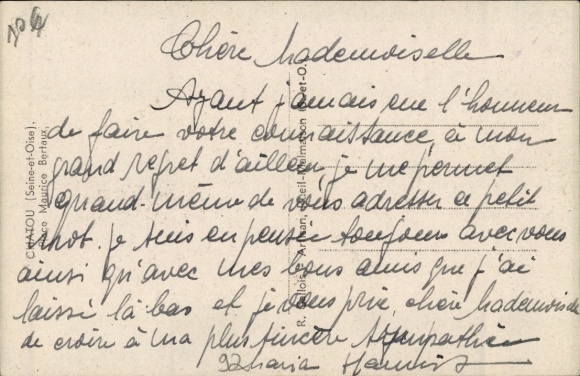 104
Chère Mademoiselle
Ayant jamais eue l'honneur
de faire votre connaissance, à mon
grand regret d'ailleur, je me permet
quand-même de vous adresser ce petit
mot. Je suis en pensée toujour avec vous
ainsi qu'avec mes bons amis que j'ai
laissé là bas et je vous prie, chère Mademoiselle
de croire à ma plus sincère sympathie
CHATOU (Seine-et-Oise).
Place Maurice Bertaux.
R. Artisan, Rueil-Malmaison (S.-et-O.